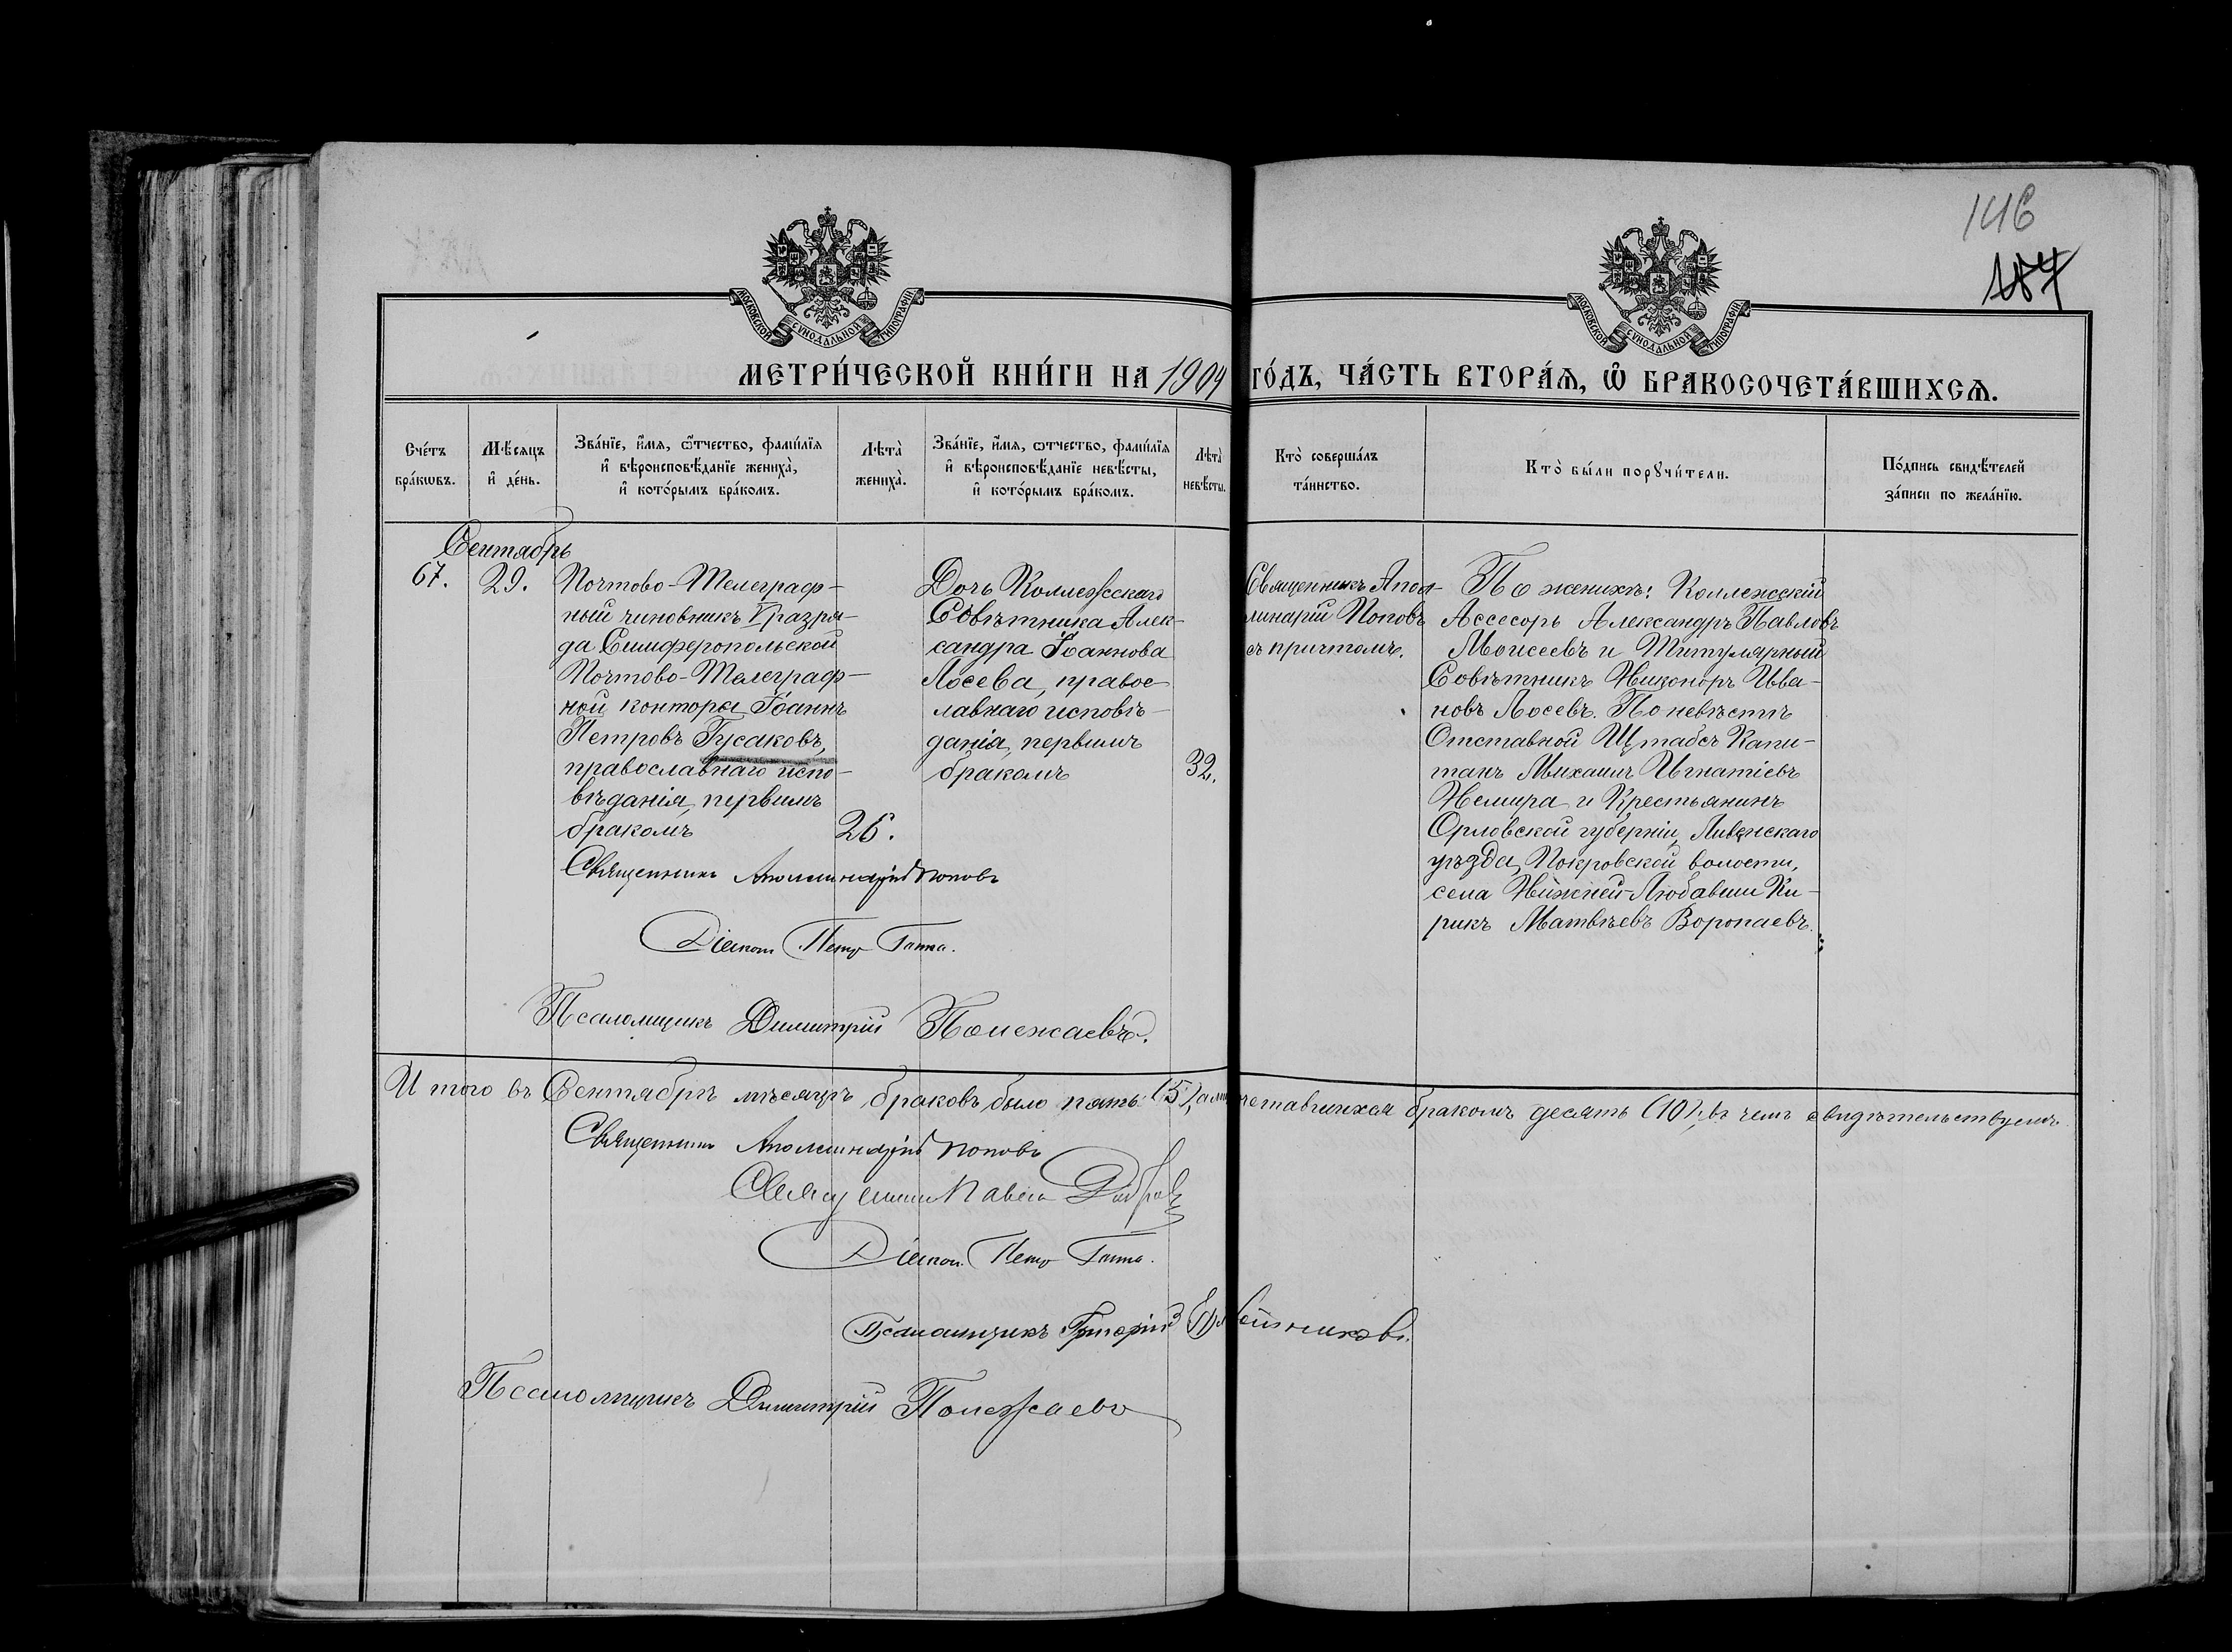 146
187
МОСКОВСКОЙ СѴНОДАЛЬНОЙ ТИПОГРАФІИ
МОСКОВСКОЙ СѴНОДАЛЬНОЙ ТИПОГРАФІИ
МЕТРИ́ЧЕСКОЙ КНИ́ГИ НА 1904 ГО́ДЪ, ЧА́СТЬ ВТОРА́Ѧ, Ѽ БРАКОСОЧЕТА́ВШИХСѦ.
Сче́тъ
бра́кѡвъ.
Мѣ́сяцъ
и҆ де́нь.
Зва́нїе, и҆́мя, ѻ҆́тчество, фами́лїя
и҆ вѣроисповѣ́данїе жениха̀,
и҆ кото́рымъ бра́комъ.
Лѣта̀
жениха̀.
Зва́нїе, и҆́мя, ѻ҆́тчество, фами́лїя
и҆ вѣроисповѣ́данїе невѣ́сты,
и҆ кото́рымъ бра́комъ.
Лѣта̀
невѣ́сты.
Кто̀ соверша́лъ
та́инство.
Кто̀ бы́ли порꙋчи́тели.
По́дпись свидѣ́телей
за́писи по жела́нїю.
Сентябрь
67.
29.
Почтово-Телеграф-
ный чиновникъ VI разря-
да Симферопольской
Почтово-Телеграф-
ной конторы Іоаннъ
Петровъ Гусаковъ,
православнаго испо-
вѣданія, первымъ
бракомъ
26.
Дочь Коллежскаго
Совѣтника Алек-
сандра Іоаннова
Лосева, правос-
лавнаго исповѣ-
данія, первымъ
бракомъ
32.
Священникъ Апол-
линарій Поповъ
съ причтомъ.
По женихѣ: Коллежскій
Ассесоръ Александръ Павловъ
Моисеевъ и Титулярный
Совѣтникъ Никоноръ Ива-
новъ Лосевъ. По невѣстѣ
Отставной Штабсъ Капи-
танъ Михаилъ Игнатіевъ
Немира и Крестьянинъ
Орловской губерніи, Ливенскаго
уѣзда, Покровской волости,
села Нижней-Любавши Ки-
рикъ Матвѣевъ Воропаевъ.
Священникъ Аполлинарій Поповъ
Діаконъ Петр
Псаломщикъ Димитрій Полежаевъ.
И того въ Сентябрѣ мѣсяцѣ браковъ было пять (5), а сочетавшихся бракомъ десять (10), въ чемъ свидѣтельствуемъ
Священникъ Аполлинарій Поповъ
Священникъ Павелъ
Діакон Петр
Псаломщикъ Григорій
Псаломщикъ Димитрій Полежаевъ